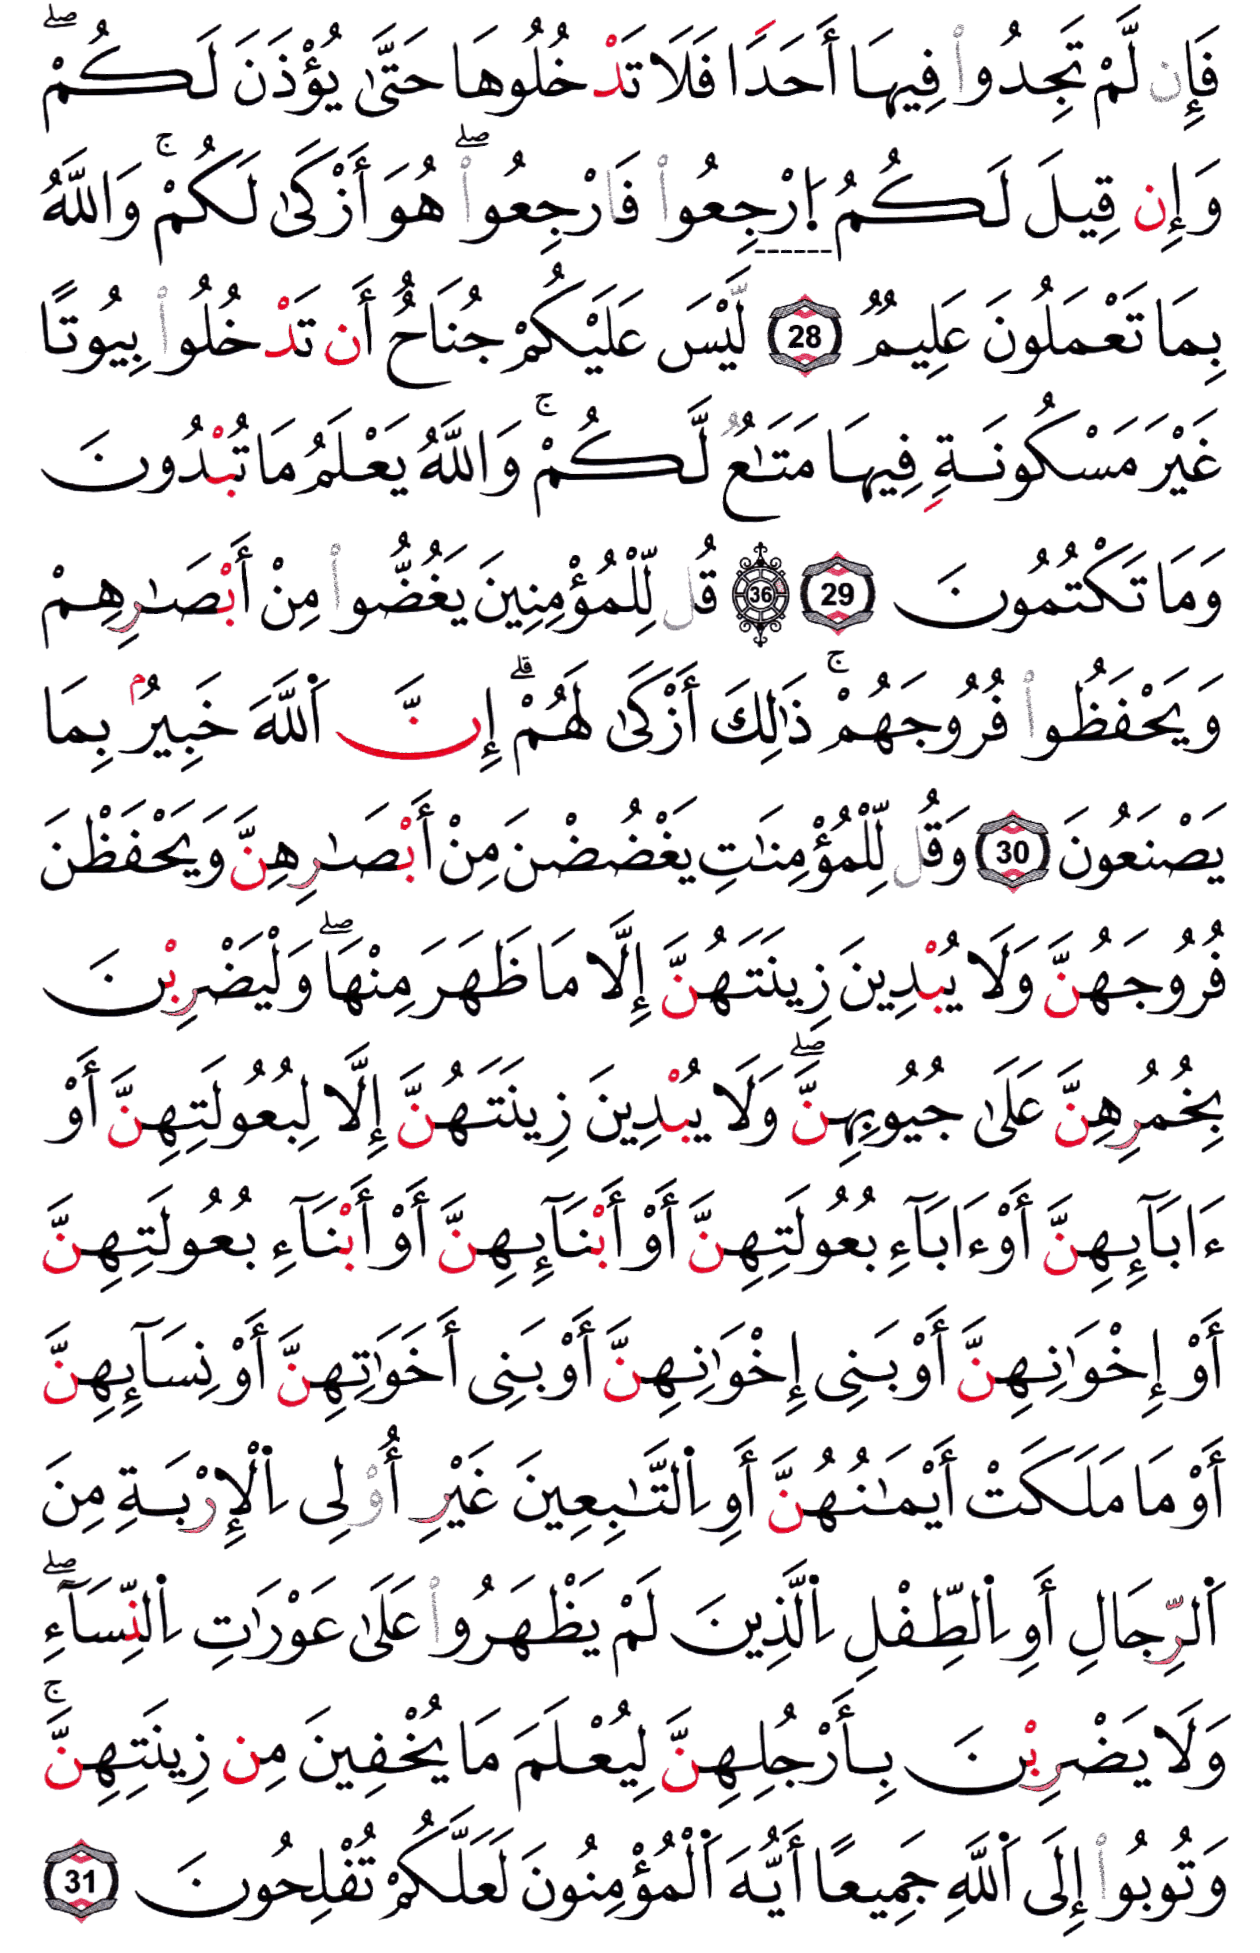 فَإِن لَّمْ تَجِدُوا۟ فِيهَا أَحَدًا فَلَا تَدْخُلُوهَا حَتَّىٰ يُؤْذَنَ لَكُمْ ۖ
وَإِن قِيلَ لَكُمُ اِ۪رْجِعُوا۟ فَارْجِعُوا۟ ۖ هُوَ أَزْكَىٰ لَكُمْ ۚ وَاللَّهُ
بِمَا تَعْمَلُونَ عَلِيمٌ 28 لَّيْسَ عَلَيْكُمْ جُنَاحٌ أَن تَدْخُلُوا۟ بِيُوتًا
غَيْرَ مَسْكُونَةٍ فِيهَا مَتَـٰعٌ لَّكُمْ ۚ وَاللَّهُ يَعْلَمُ مَا تُبْدُونَ
وَمَا تَكْتُمُونَ 29 36 قُل لِّلْمُؤْمِنِينَ يَغُضُّوا۟ مِنْ أَبْصَـٰرِهِمْ
وَيَحْفَظُوا۟ فُرُوجَهُمْ ۚ ذَٰلِكَ أَزْكَىٰ لَهُمْ ۗ إِنَّ اَللَّهَ خَبِيرٌۢ بِمَا
يَصْنَعُونَ 30 وَقُل لِّلْمُؤْمِنَـٰتِ يَغْضُضْنَ مِنْ أَبْصَـٰرِهِنَّ وَيَحْفَظْنَ
فُرُوجَهُنَّ وَلَا يُبْدِينَ زِينَتَهُنَّ إِلَّا مَا ظَهَرَ مِنْهَا ۖ وَلْيَضْرِبْنَ
بِخُمُرِهِنَّ عَلَىٰ جُيُوبِهِنَّ ۖ وَلَا يُبْدِينَ زِينَتَهُنَّ إِلَّا لِبُعُولَتِهِنَّ أَوْ
ءَابَآئِهِنَّ أَوْ ءَابَآءِ بُعُولَتِهِنَّ أَوْ أَبْنَآئِهِنَّ أَوْ أَبْنَآءِ بُعُولَتِهِنَّ
أَوْ إِخْوَٰنِهِنَّ أَوْ بَنِى إِخْوَٰنِهِنَّ أَوْ بَنِى أَخَوَٰتِهِنَّ أَوْ نِسَآئِهِنَّ
أَوْ مَا مَلَكَتْ أَيْمَـٰنُهُنَّ أَوِ اِلتَّـٰبِعِينَ غَيْرِ أُو۟لِى اِلْإِرْبَةِ مِنَ
اَلرِّجَالِ أَوِ اِلطِّفْلِ اِلَّذِينَ لَمْ يَظْهَرُوا۟ عَلَىٰ عَوْرَٰتِ اِلنِّسَآءِ ۖ
وَلَا يَضْرِبْنَ بِأَرْجُلِهِنَّ لِيُعْلَمَ مَا يُخْفِينَ مِن زِينَتِهِنَّ ۚ
وَتُوبُوا۟ إِلَى اَللَّهِ جَمِيعًا أَيُّهَ اَلْمُؤْمِنُونَ لَعَلَّكُمْ تُفْلِحُونَ 31